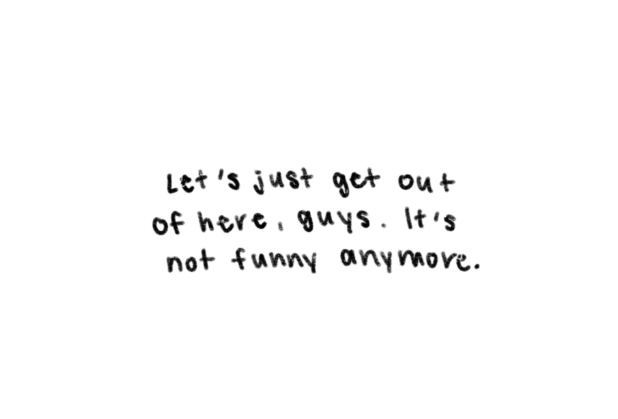 Let's just get out
of here, guys. It's
not funny anymore.